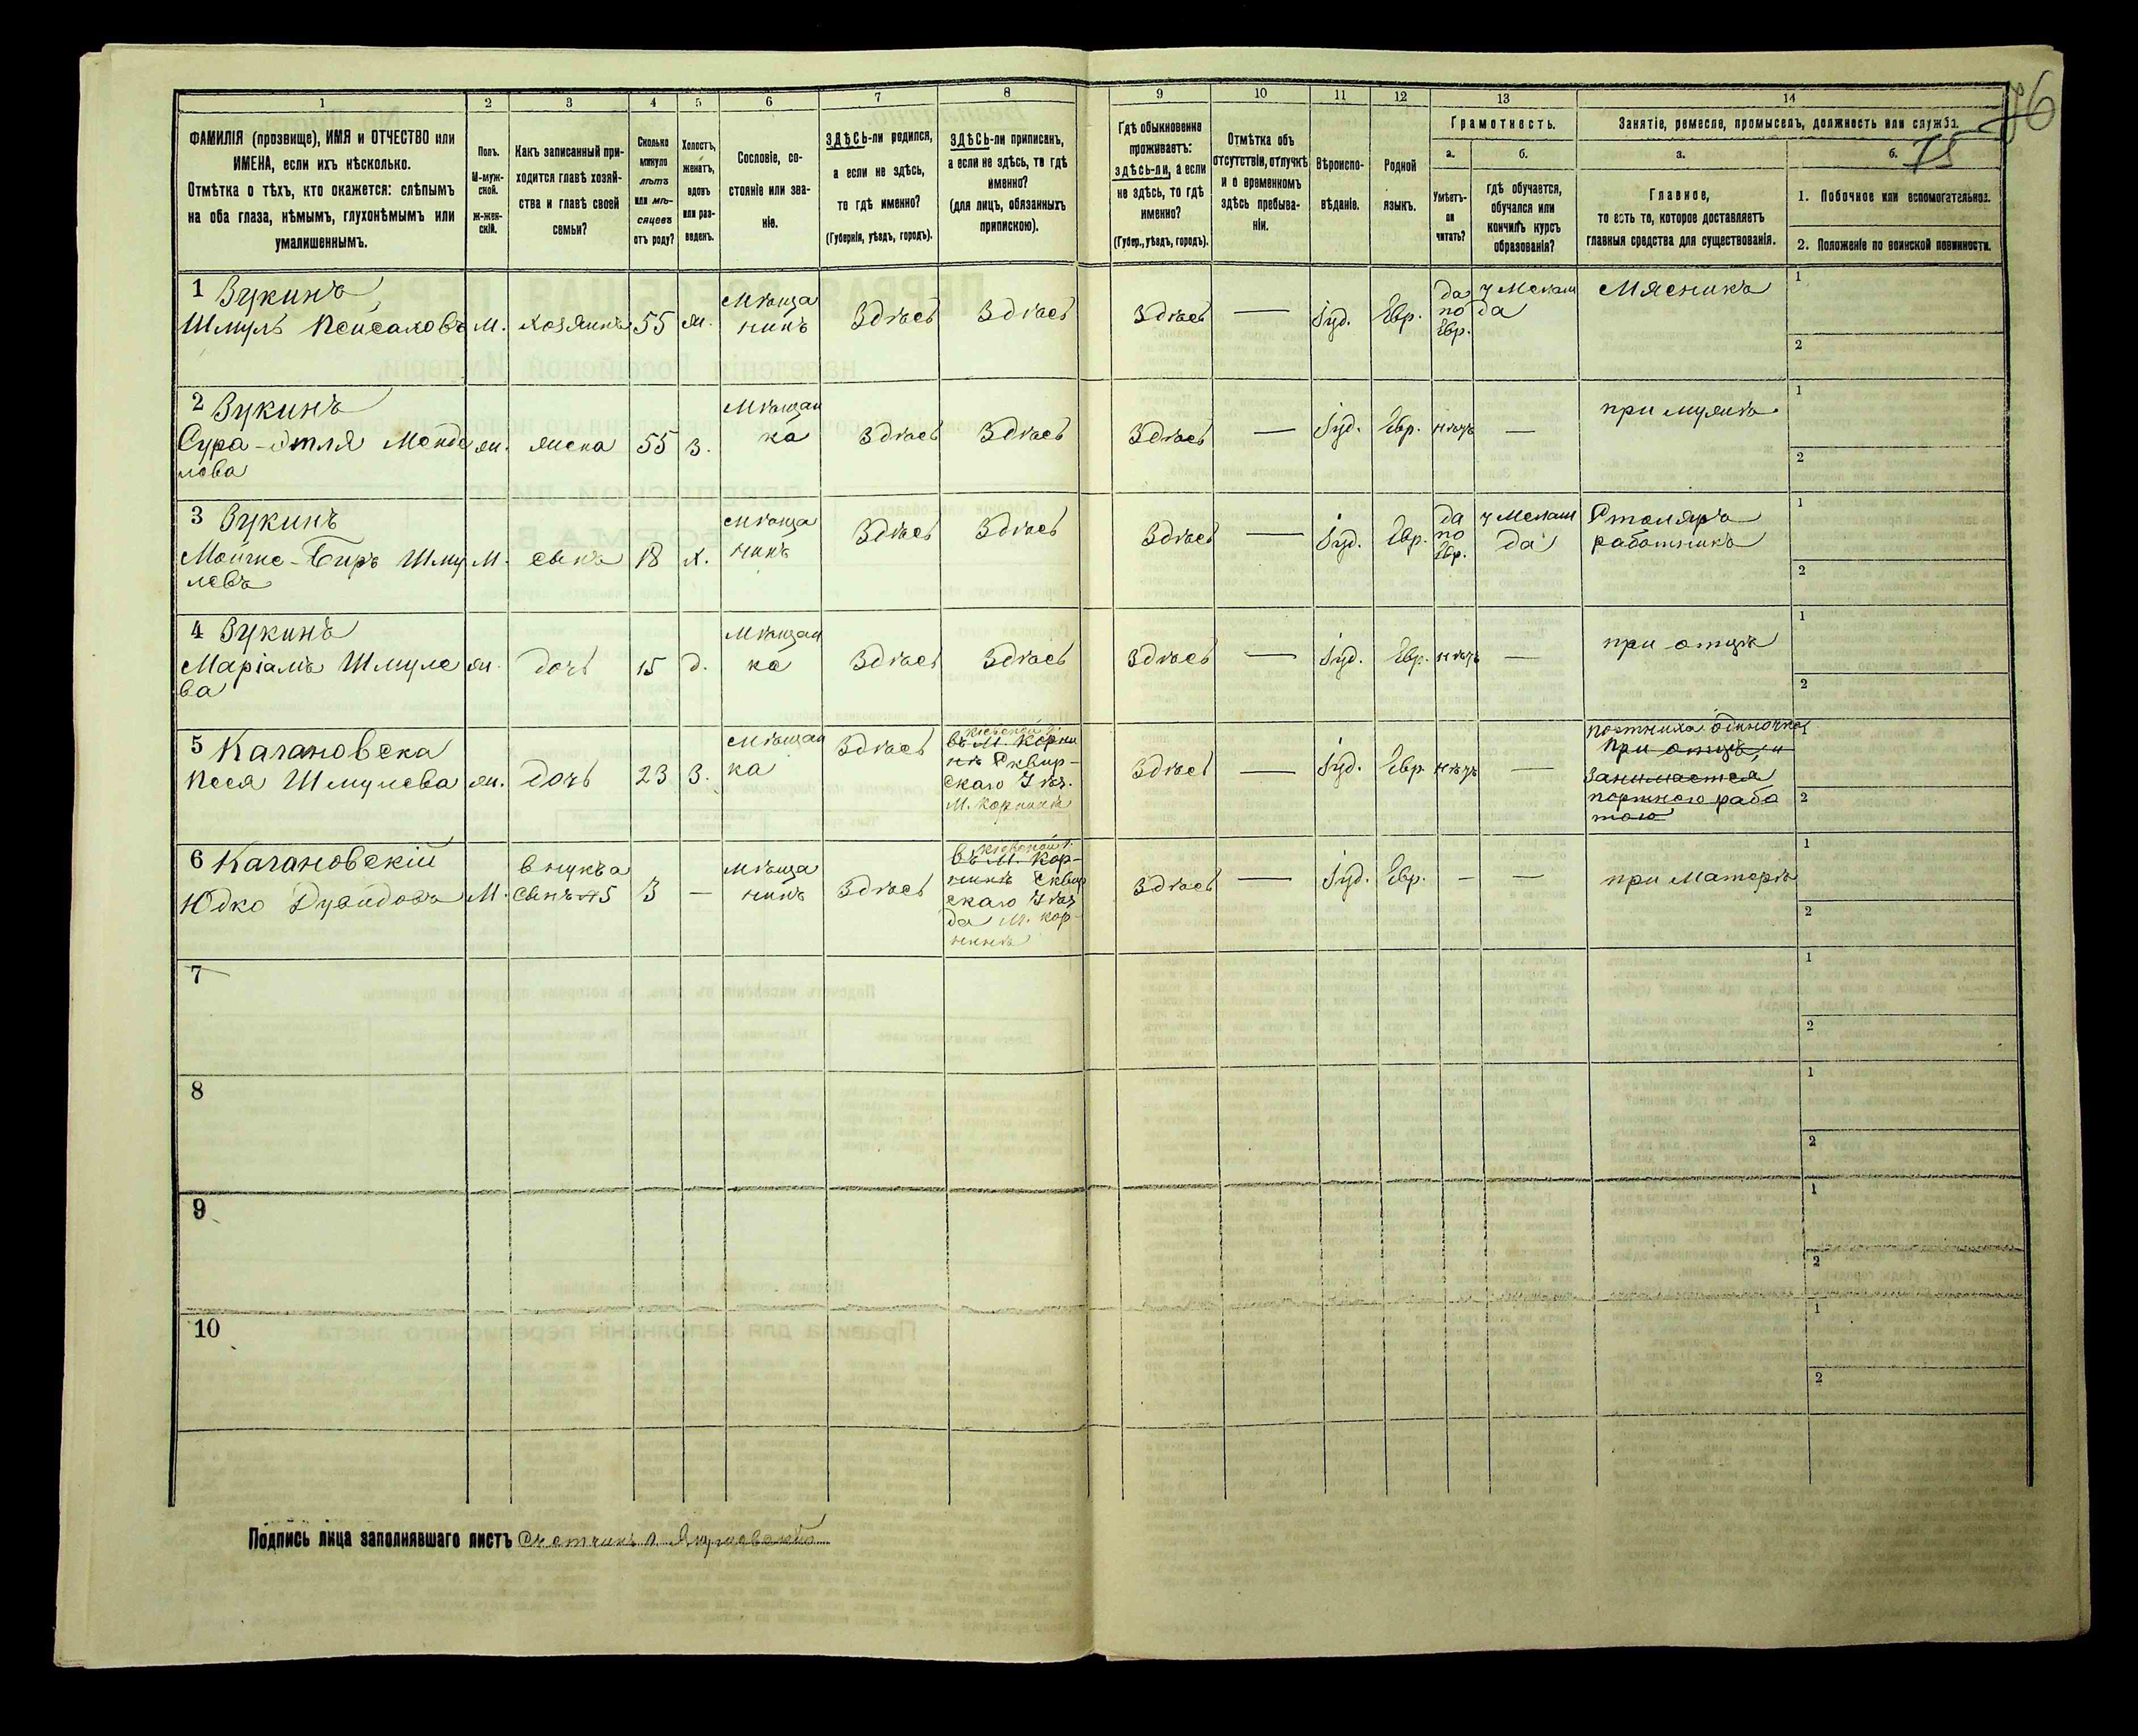 1 2 3 4 5 6 7 8 9 10 11 12 13 14
ФАМИЛІЯ (прозвище), ИМЯ и ОТЧЕСТВО или
ИМЕНА, если ихъ нѣсколько.
Отмѣтка о тѣхъ, кто окажется: слѣпымъ
на оба глаза, нѣмымъ, глухонѣмымъ или
умалишеннымъ.
Полъ.
М-муж-
ской.
Ж-жен-
скій.
Какъ записанный при-
ходится главѣ хозяй-
ства и главѣ своей
семьи?
Сколько
минуло
лѣтъ
или мѣ-
сяцевъ
отъ роду?
Холостъ,
женатъ,
вдовъ
или раз-
веденъ.
Сословіе, со-
стояніе или зва-
ніе.
ЗДѢСЬ-ли родился,
а если не здѣсь,
то гдѣ именно?
(Губернія, уѣздъ, городъ).
ЗДѢСЬ-ли приписанъ,
а если не здѣсь, то гдѣ
именно?
(для лицъ, обязанныхъ
припискою).
Гдѣ обыкновенно
проживаетъ:
здѣсь-ли, а если
не здѣсь, то гдѣ
именно?
(Губер., уѣздъ, городъ).
Отмѣтка объ
отсутствіи, отлучкѣ
и о временномъ
здѣсь пребыва-
ніи.
Вѣроиспо-
вѣданіе.
Родной
языкъ.
Грамотность.
а.
Умѣетъ-
ли
читать?
б.
гдѣ обучается,
обучался или
кончилъ курсъ
образованія?
Занятіе, ремесло, промыселъ, должность или служба.
а.
Главное,
то есть то, которое доставляетъ
главныя средства для существованія.
б.
75
1. Побочное или вспомогательное.
2. Положеніе по воинской повинности.
1 Зукинъ
Шмуль Пейсаховъ
М.
хозяинъ
55
ж.
Мѣща
нинъ
Здѣсь
Здѣсь
Здѣсь
—
Іуд.
Евр.
да
по
Евр.
у Мелам
да
Мясникъ
1
2
2 Зукинъ
Сура-Этля Менде
лева
жн.
жена
55
З.
Мѣщан
ка
Здѣсь
Здѣсь
Здѣсь
—
Іуд.
Евр.
нѣтъ
—
при мужѣ
1
2
3 Зукинъ
Мойше-Биръ Шму
левъ
М.
сынъ
18
х.
Мѣща
нинъ
Здѣсь
Здѣсь
Здѣсь
—
Іуд.
Евр.
да
по
Евр.
у Мелам
да
Столяръ
работникъ
1
2
4 Зукинъ
Маріамъ Шмуле
ва
жн.
дочь
15
д.
Мѣщан
ка
Здѣсь
Здѣсь
Здѣсь
—
Іуд.
Евр.
нѣтъ
—
при отцѣ
1
2
5 Кагановска
Песя Шмулева
жн.
дочь
23
З.
Мѣщан
ка
Здѣсь
Кіевской г.
въ М. Корни
нѣ Сквир-
скаго Уѣз.
М. Корнинѣ
Здѣсь
—
Іуд.
Евр.
нѣтъ
—
портниха одиночка
при отцѣ, и
занимается
портною рабо
тою
1
2
6 Кагановскій
Юдко Дувидовъ
М.
внукъ
сынъ №5
3
—
Мѣща
нинъ
Здѣсь
Кіевской г.
въ М. Кор-
нинѣ Сквир
скаго Уѣз
да М. Кор-
нинѣ
Здѣсь
—
Іуд.
Евр.
—
—
при Матерѣ
1
2
7
1
2
8
1
2
9
1
2
10
1
2
Подпись лица заполнявшаго листъ Счетчикъ